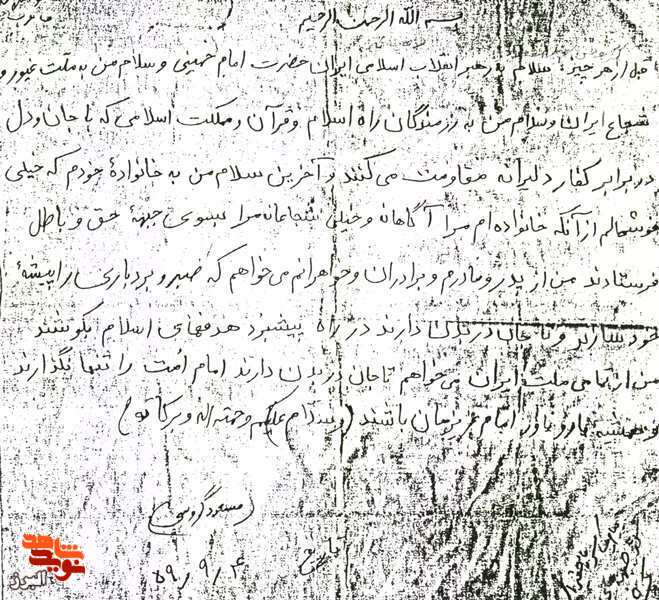 بسم الله الرحمن الرحیم
قبل از هر چیز سلام به رهبر انقلاب اسلامی ایران حضرت امام خمینی و سلام من به ملت غیور و
شجاع ایران و سلام من به رزمندگان راه اسلام و قرآن و مملکت اسلامی که با جان و دل
در برابر کفار دلیرانه مقاومت می کنند و آخرین سلام من به خانوادهٔ خودم که خیلی
خوشحالم از آنکه خانواده ام مرا آگاهانه و خیلی شجاعانه مرا بسوی جبههٔ حق و باطل
فرستادند من از پدر و مادرم و برادران و خواهرانم می خواهم که صبر و بردباری را پیشهٔ
خود سازند و تا جان در بدن دارند در راه پیشبرد هدفهای اسلام بکوشند
من از تمامی ملت ایران می خواهم تا جان در بدن دارند امام امت را تنها نگذارند
و همیشه یار و یاور امام عزیزمان باشند (والسلام علیکم و رحمته اله و برکاتو)
مسعود گروسی
تاریخ ۵۹/۹/۴
شاهد
نوید
البرز